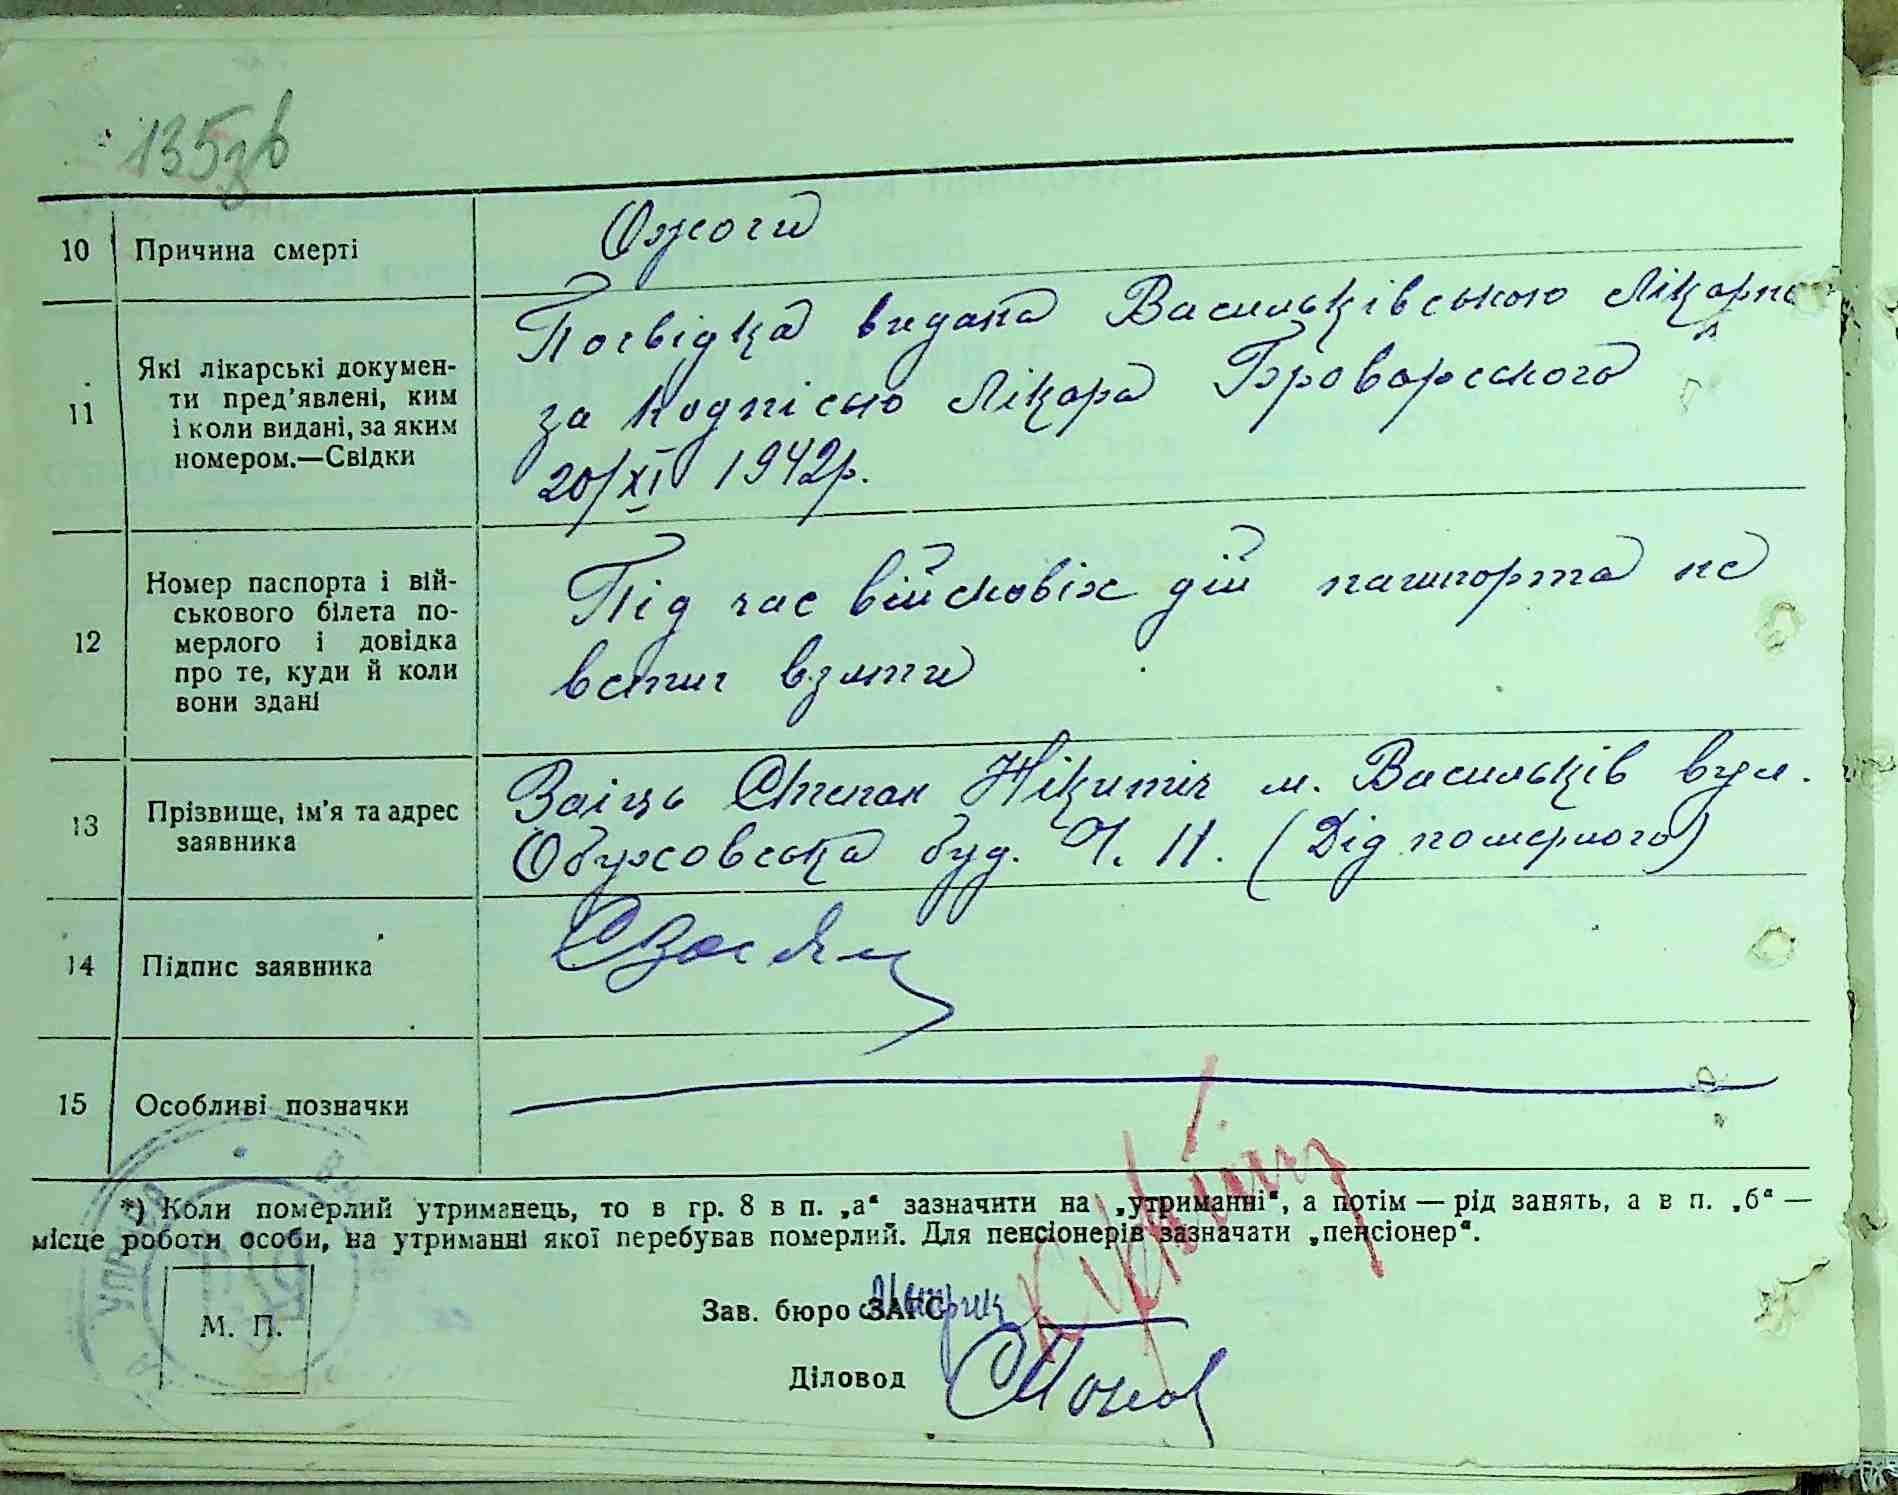 135зв
10 Причина смерті
Ожоги
11 Які лікарські докумен-
ти пред'явлені, ким
і коли видані, за яким
номером.—Свідки
Посвідка видана Васильківською Лікарн
за подпісью Лікара Броварського
20/XI 1942р.
12 Номер паспорта і вій-
ськового білета по-
мерлого і довідка
про те, куди й коли
вони здані
Під час війсковіх дій пашпорта не
встиг взяти
13 Прізвище, ім'я та адрес
заявника
Заіць Степан Нікитіч м. Васильків вул.
Обуховська буд. Ч. 11. (Дід померлого)
14 Підпис заявника
15 Особливі позначки
*) Коли померлий утриманець, то в гр. 8 в п. „а“ зазначити на „утриманні“, а потім — рід занять, а в п. „б“ —
місце роботи особи, на утриманні якої перебував померлий. Для пенсіонерів зазначати „пенсіонер“.
М. П.
Зав. бюро ЗАГС
Діловод